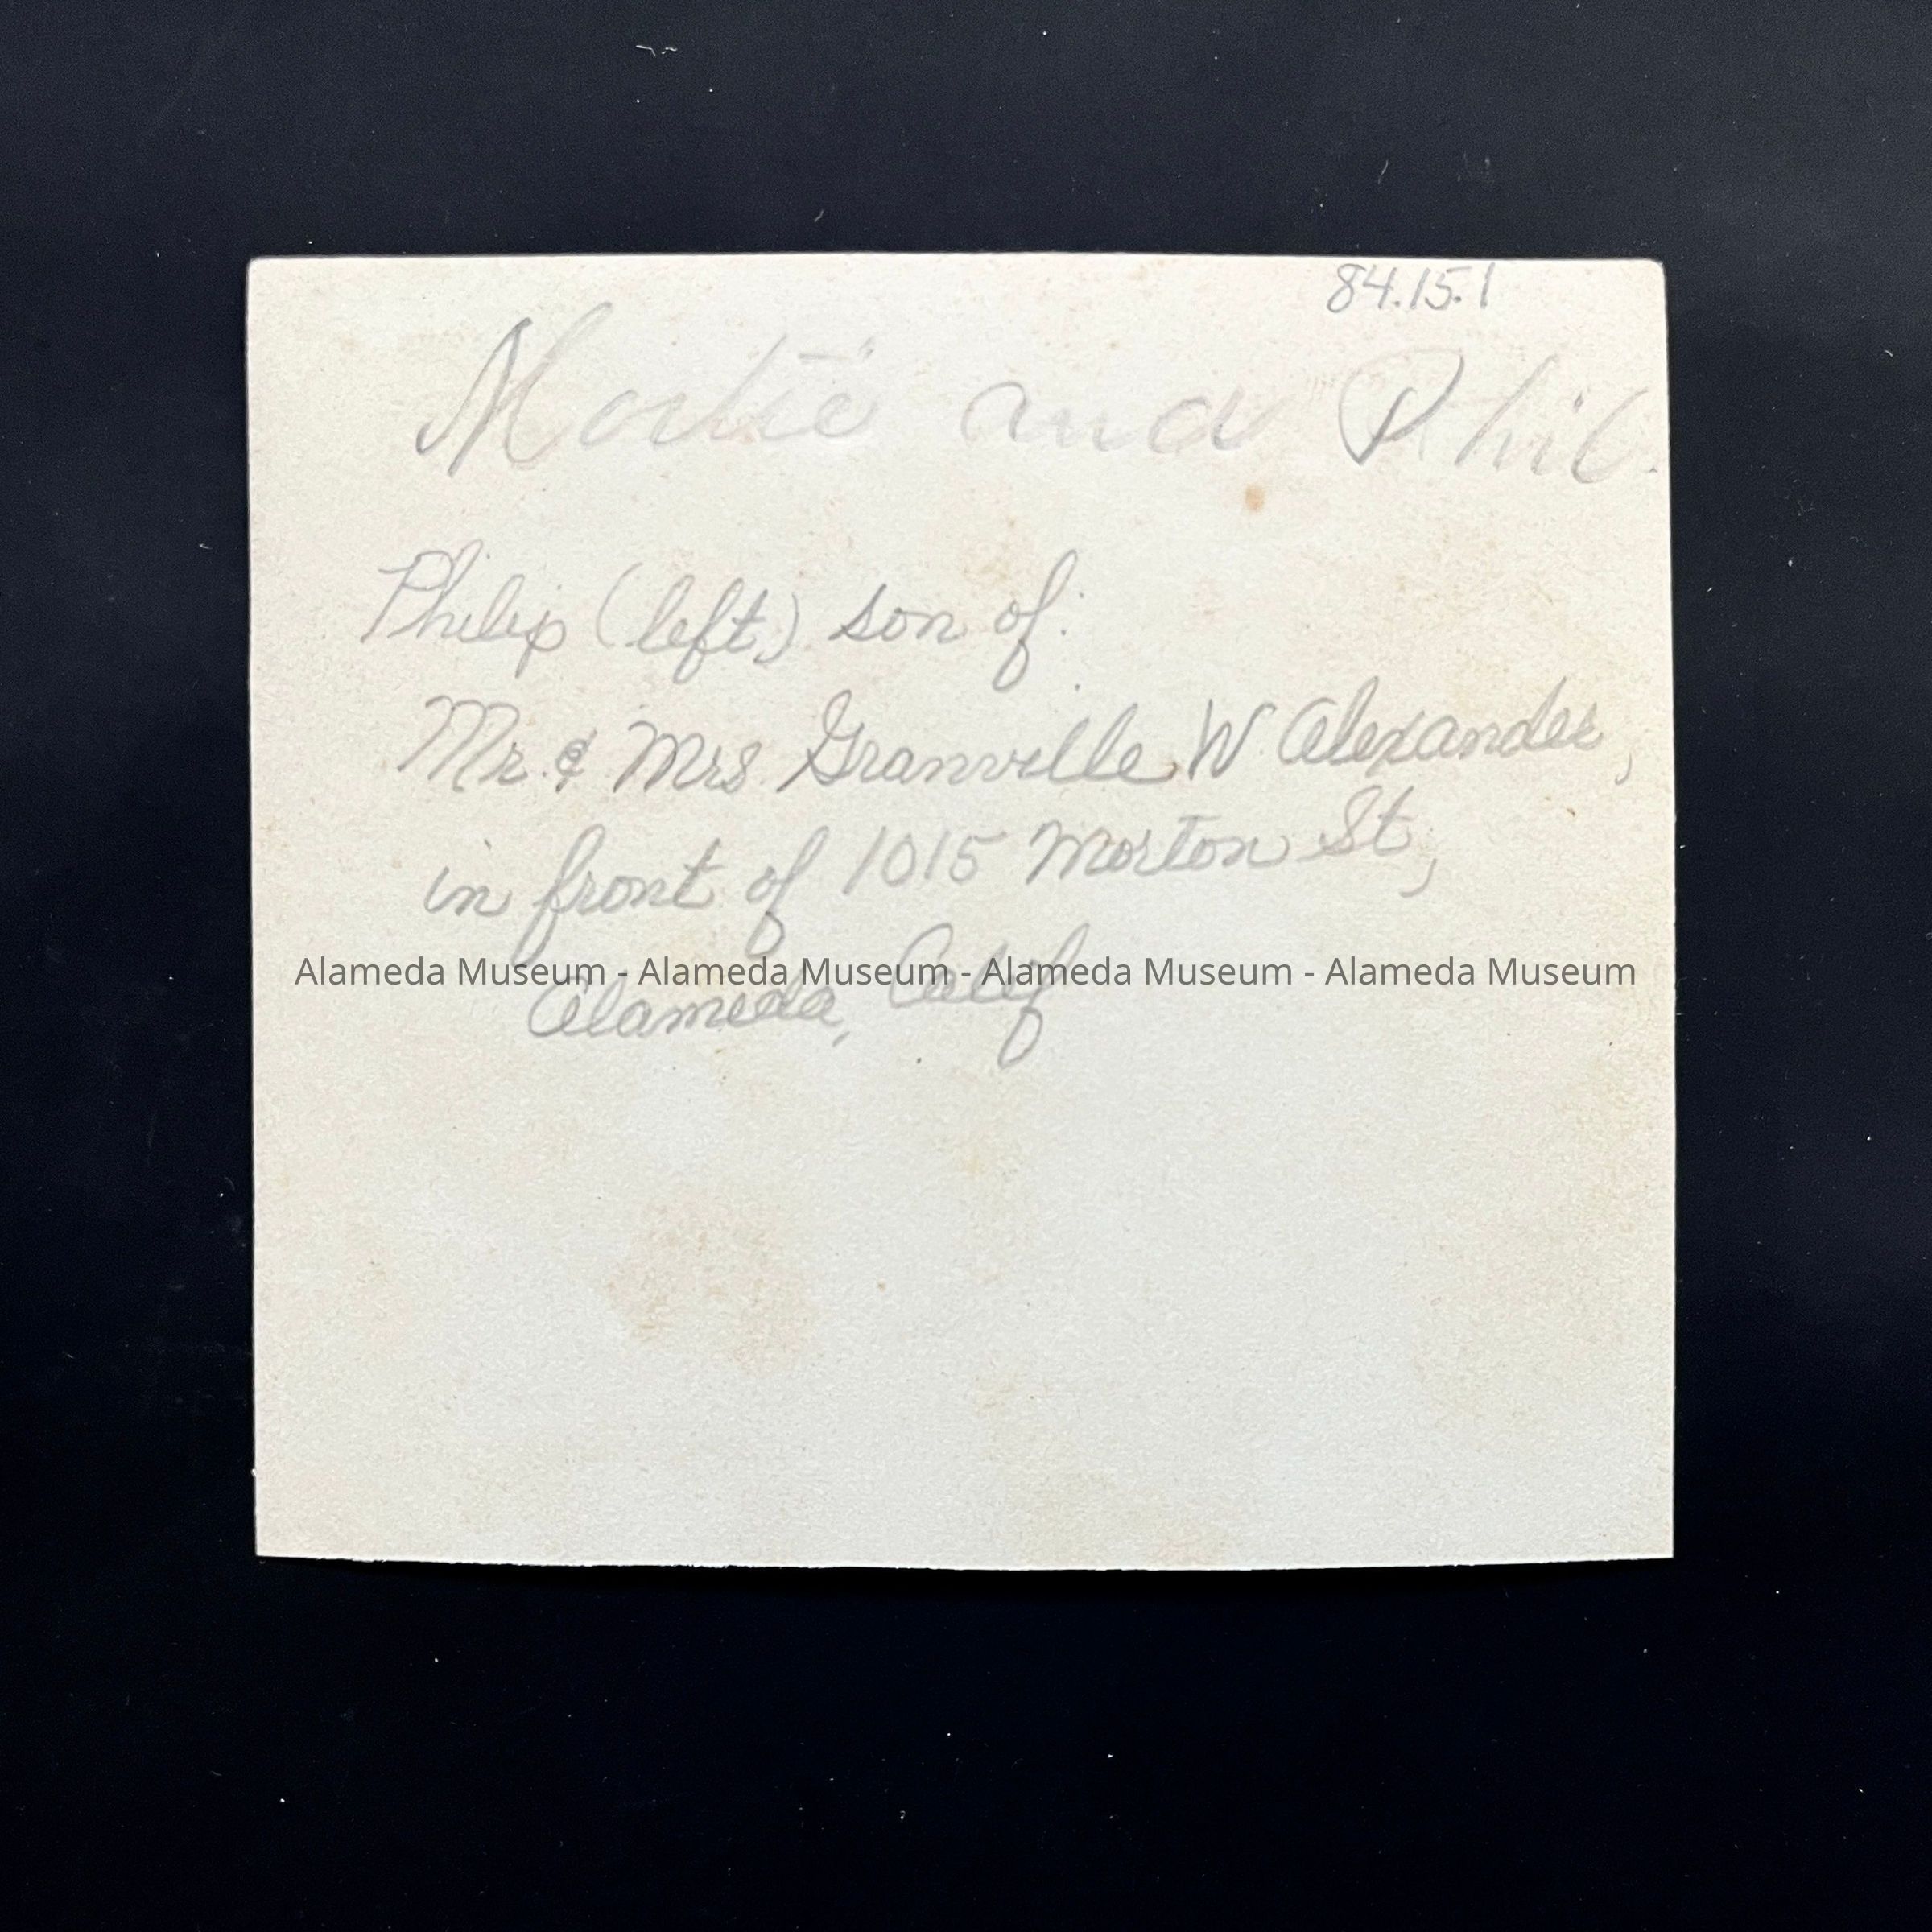 84.15.1
Mortie and Phil.
Philip (left) son of:
Mr. & Mrs. Granville W. Alexander,
in front of 1015 Morton St,
Alameda Museum - Alameda Museum - Alameda Museum - Alameda Museum
Alameda, Calif